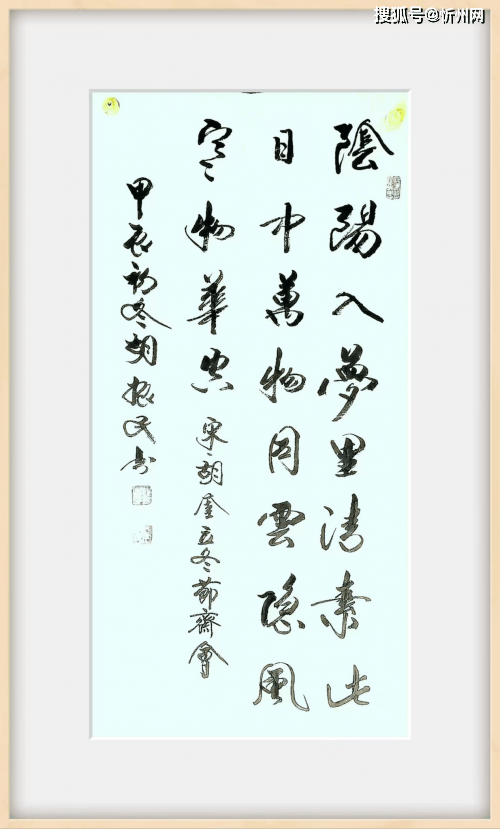 搜狐号@忻州网
陰陽入夢里清素此
日中萬物同雲隱風
寒物華空 宋胡奎立冬節齋會
甲辰初冬胡振民书